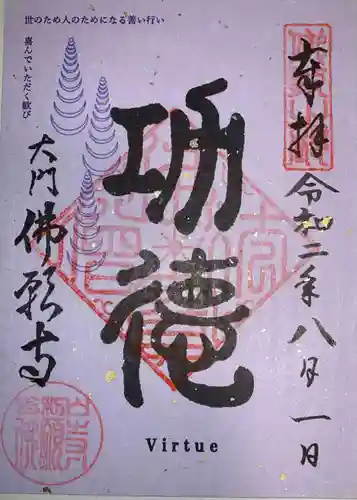 奉拝
令和二年八月一日
功徳
Virtue
世のため人のためになる善い行い
喜んでいただく歓び
大門
佛願寺